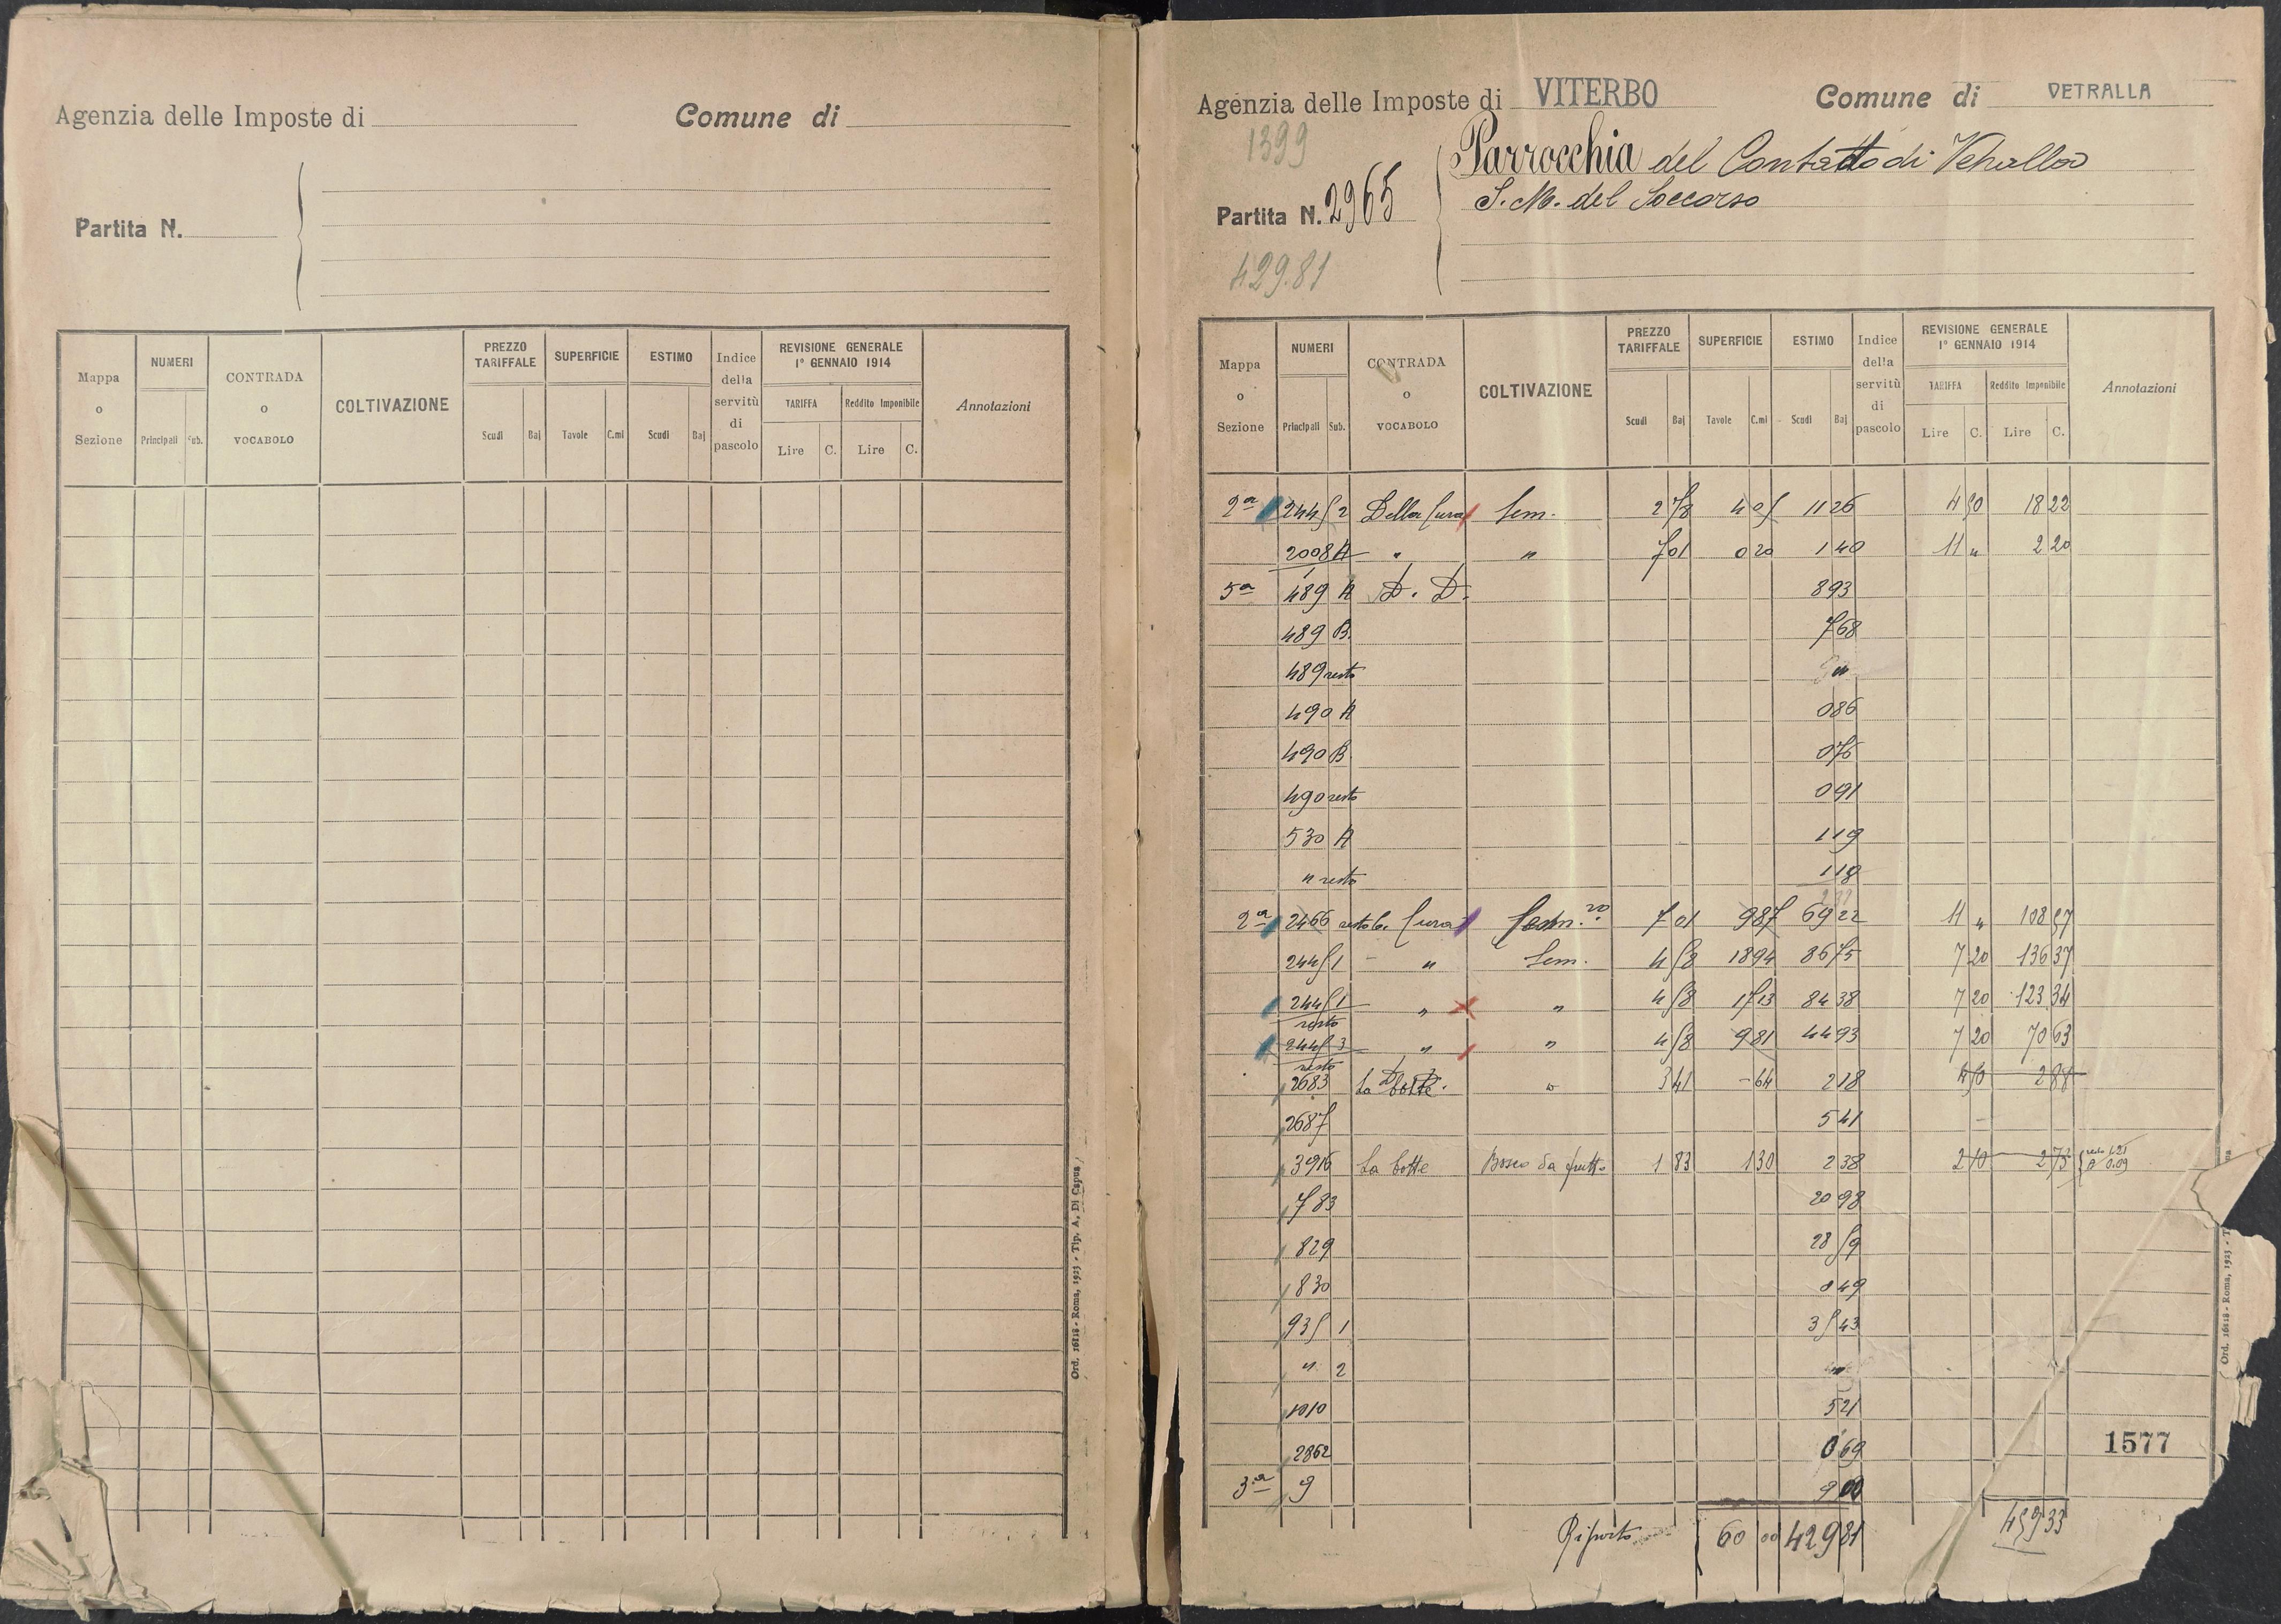 Agenzia delle Imposte di
Comune di
Partita N.
Mappa o Sezione
NUMERI
Principali Sub.
CONTRADA o VOCABOLO
COLTIVAZIONE
PREZZO TARIFFALE
Scudi Baj
SUPERFICIE
Tavole C.mi
ESTIMO
Scudi Baj
Indice della servitù di pascolo
REVISIONE GENERALE
1º GENNAIO 1914
TARIFFA
Lire C.
Reddito Imponibile
Lire C.
Annotazioni
Ord. 16118 - Roma, 1923 - Tip. A. Di Capua
Agenzia delle Imposte di VITERBO
Comune di VETRALLA
1399
Parrocchia del Contado di Vetralla
Partita N. 2965
S. M. del Soccorso
429.81
Mappa o Sezione
NUMERI
Principali Sub.
CONTRADA o VOCABOLO
COLTIVAZIONE
PREZZO TARIFFALE
Scudi Baj
SUPERFICIE
Tavole C.mi
ESTIMO
Scudi Baj
Indice della servitù di pascolo
REVISIONE GENERALE
1º GENNAIO 1914
TARIFFA
Lire C.
Reddito Imponibile
Lire C.
Annotazioni
2ª 2445 2 Della Cura Sem. 2 78 4 05 11 26 4 50 18 22
2008 A " " 7 01 0 20 1 40 11 " 2 20
5ª 489 A D. D. 8 93
489 B. 7 68
489 resto
490 A 0 86
490 B. 0 76
490 resto 0 91
530 A 1 19
" resto 1 18
2ª 2466 resto La Cura 7 01 9 87 69 22 11 " 108 57
2445 1 " Sem. 4 58 18 94 86 75 7 20 136 37
2445 1 resto " " 4 58 17 13 84 38 7 20 123 34
2445 3 resto " " 4 58 9 81 44 93 7 20 70 63
2683 La botte D. " 3 41 - 64 2 18 4 50 2 88
2687 5 41
3916 La botte Bosco da frutto 1 83 1 30 2 38 2 10 2 73
783 20 98
829 28 59
830 0 49
935 1 35 43
" 2 "
1010 5 21
2862 0 69
3ª 9 9 00
1577
Riporto 60 00 429 81 459 33
Ord. 16118 - Roma, 1923 - T